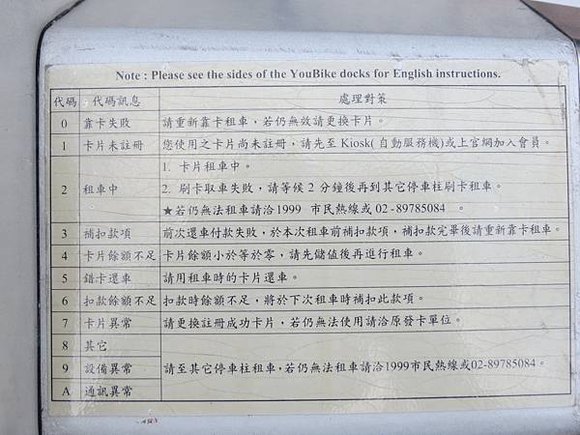 Note : Please see the sides of the YouBike docks for English instructions.
代碼 代碼訊息 處理對策
0 靠卡失敗 請重新靠卡租車，若仍無效請更換卡片。
1 卡片未註冊 您使用之卡片尚未註冊，請先至 Kiosk( 自動服務機)或上官網加入會員。
2 租車中 1. 卡片租車中。
2. 刷卡取車失敗，請等候 2 分鐘後再到其它停車柱刷卡租車。
★若仍無法租車請洽1999 市民熱線或 02-89785084 。
3 補扣款項 前次還車付款失敗，於本次租車前補扣款項，補扣款完畢後請重新靠卡租車。
4 卡片餘額不足 卡片餘額小於等於零，請先儲值後再進行租車。
5 錯卡還車 請用租車時的卡片還車。
6 扣款餘額不足 扣款時餘額不足，將於下次租車時補扣此款項。
7 卡片異常 請更換註冊成功卡片，若仍無法使用請洽原發卡單位。
8 其它
9 設備異常 請至其它停車柱租車，若仍無法租車請洽1999市民熱線或02-89785084。
A 通訊異常